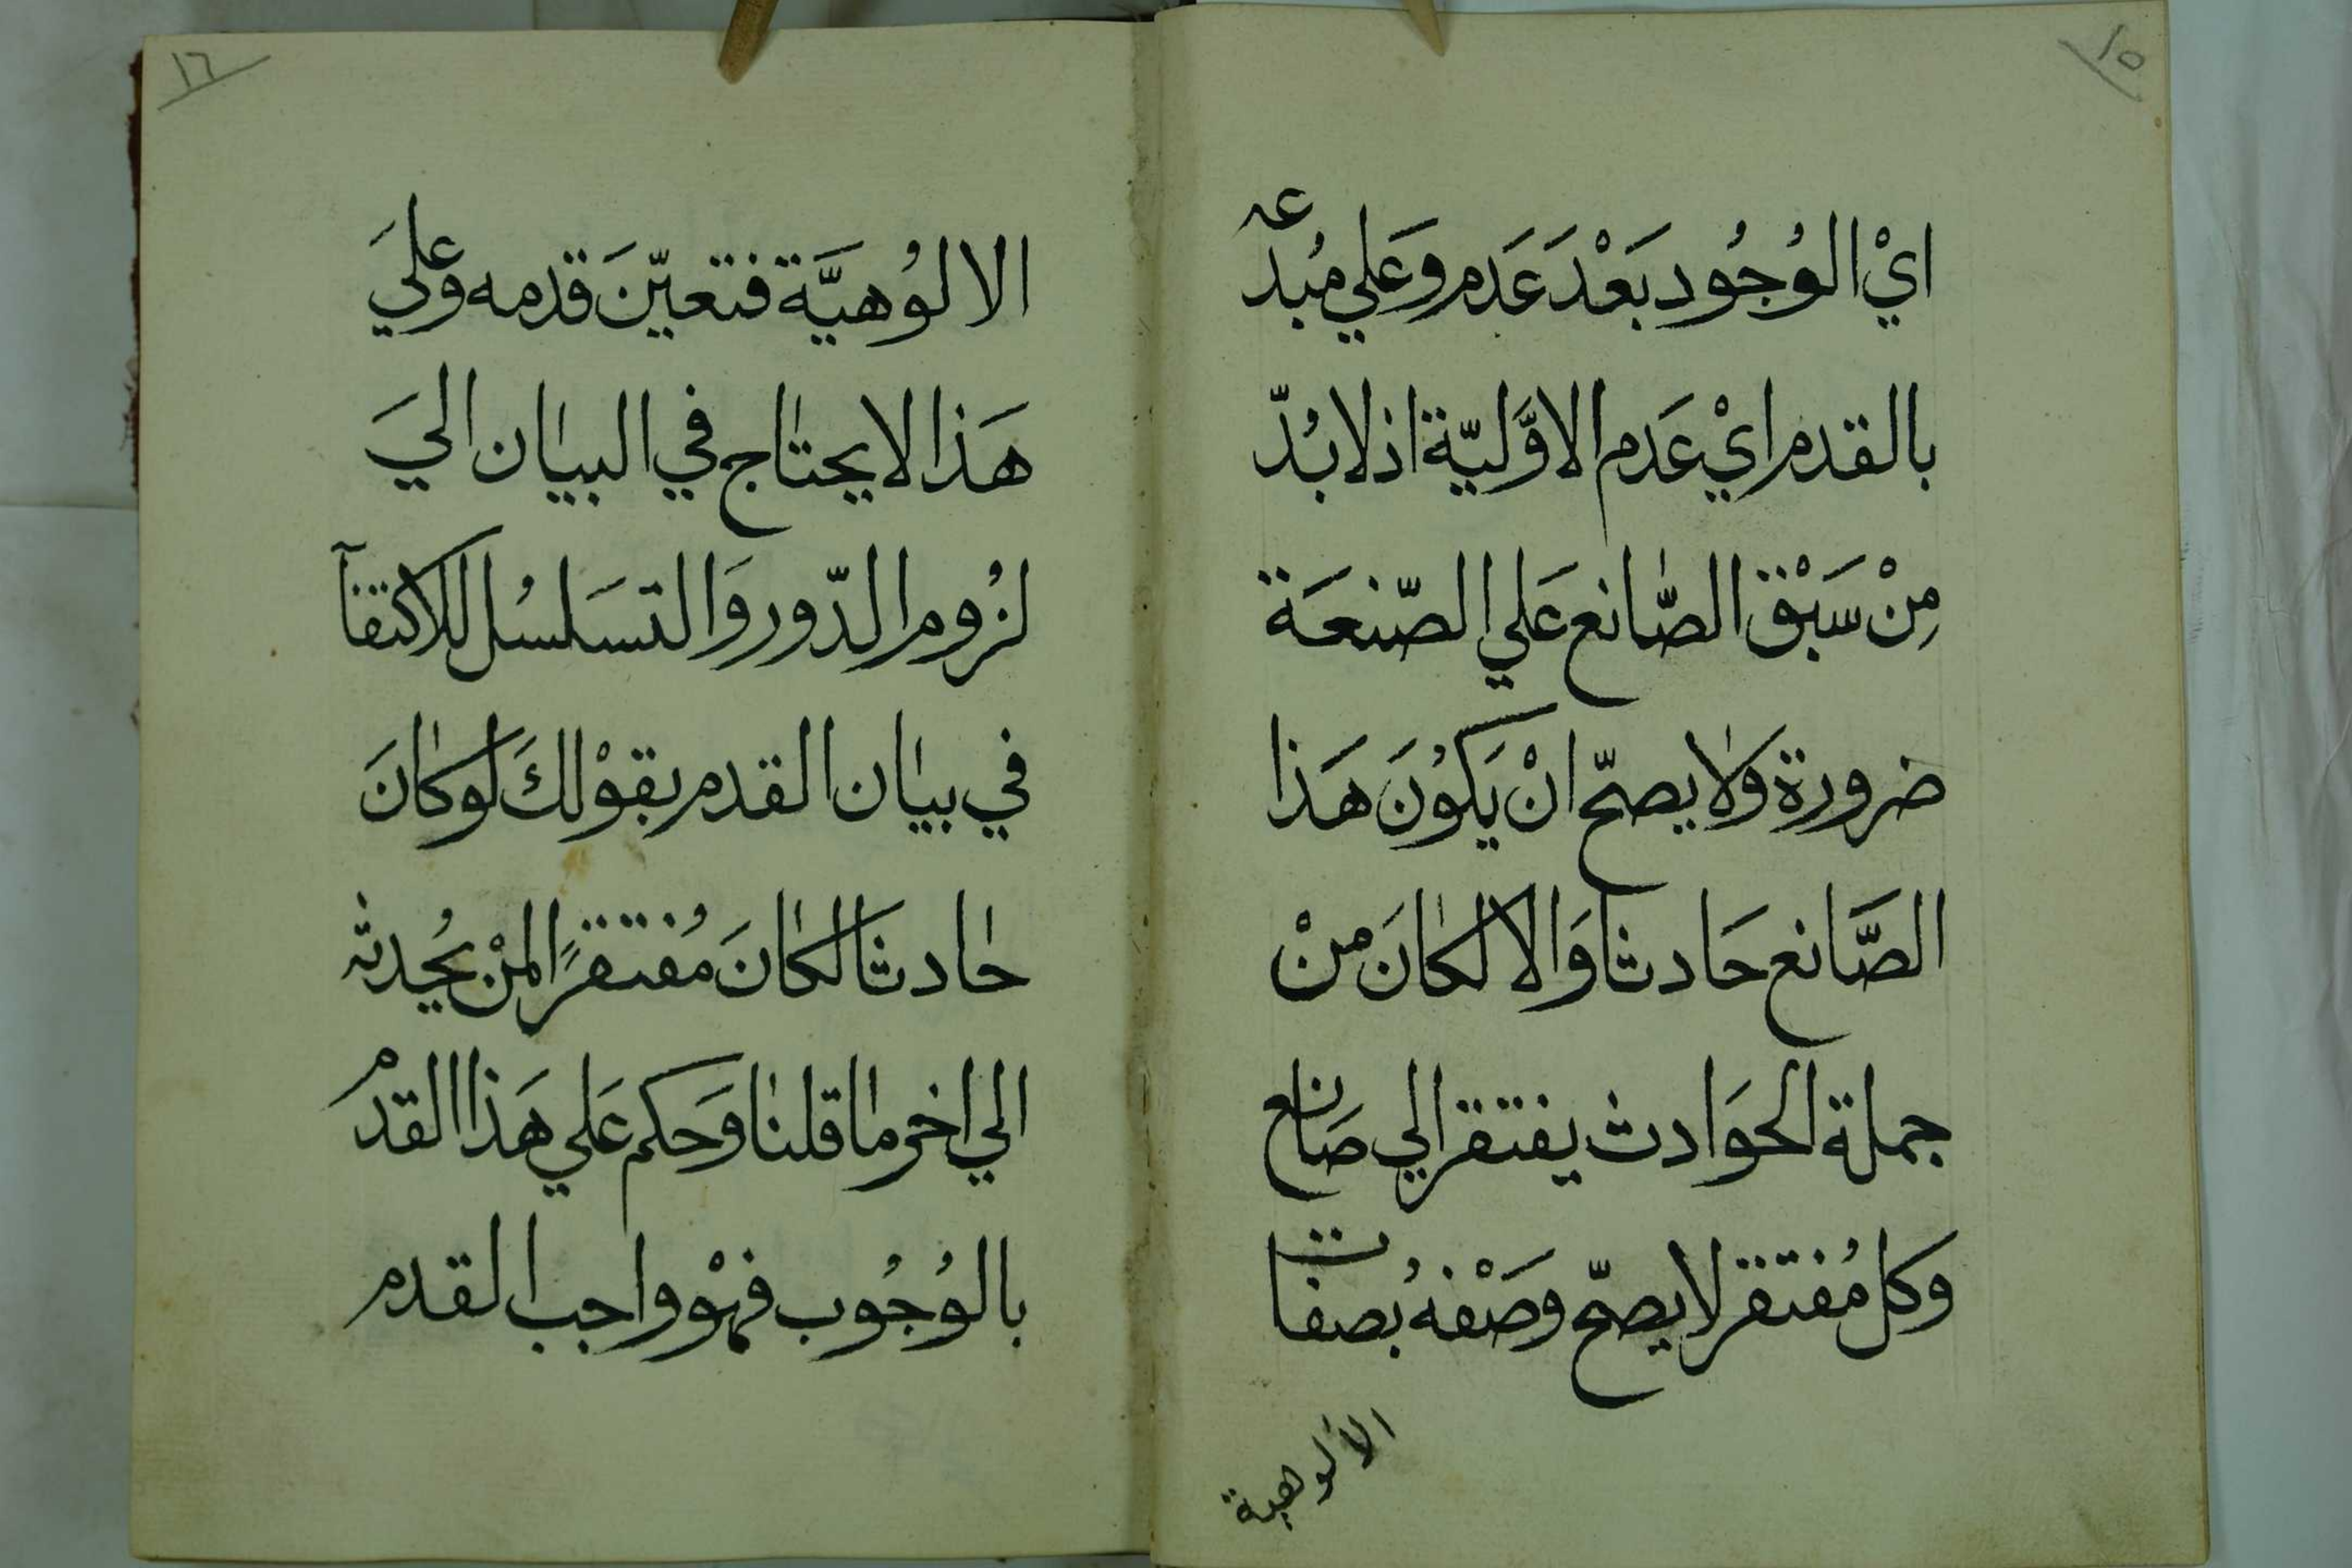 ١٥
ايْ الوُجُود بَعْدَ عَدَم وَعَلي مُبْدعه
بالقدم ايْ عَدَم الاوَّليّة اذ لا بُدّ
مِنْ سَبْق الصَّانع عَلي الصّنعَة
ضرورة وَلا يصحّ انْ يَكوُنَ هَذا
الصَّانع حَادثا وَالا لكانَ منْ
جملة الحَوَادث يفتقر الي صَانع
وَكل مُفتقر لا يصحّ وصَفهُ بصفات
الالوهية
١٦
الالوُهيَّة فتعيّنَ قدمه وَعليَ
هَذا لا يحتاج في البيان اليَ
لزُوم الدّور وَالتسَلسُل للاكتفآ
في بيان القدم بقوْلكَ لَو كانَ
حادثا لكانَ مُفتقرًا لمنْ يُحدثه
الي اخر ما قلنا وَحكم عَلي هَذا القدم
بالوُجُوب فهْو واجب القدم